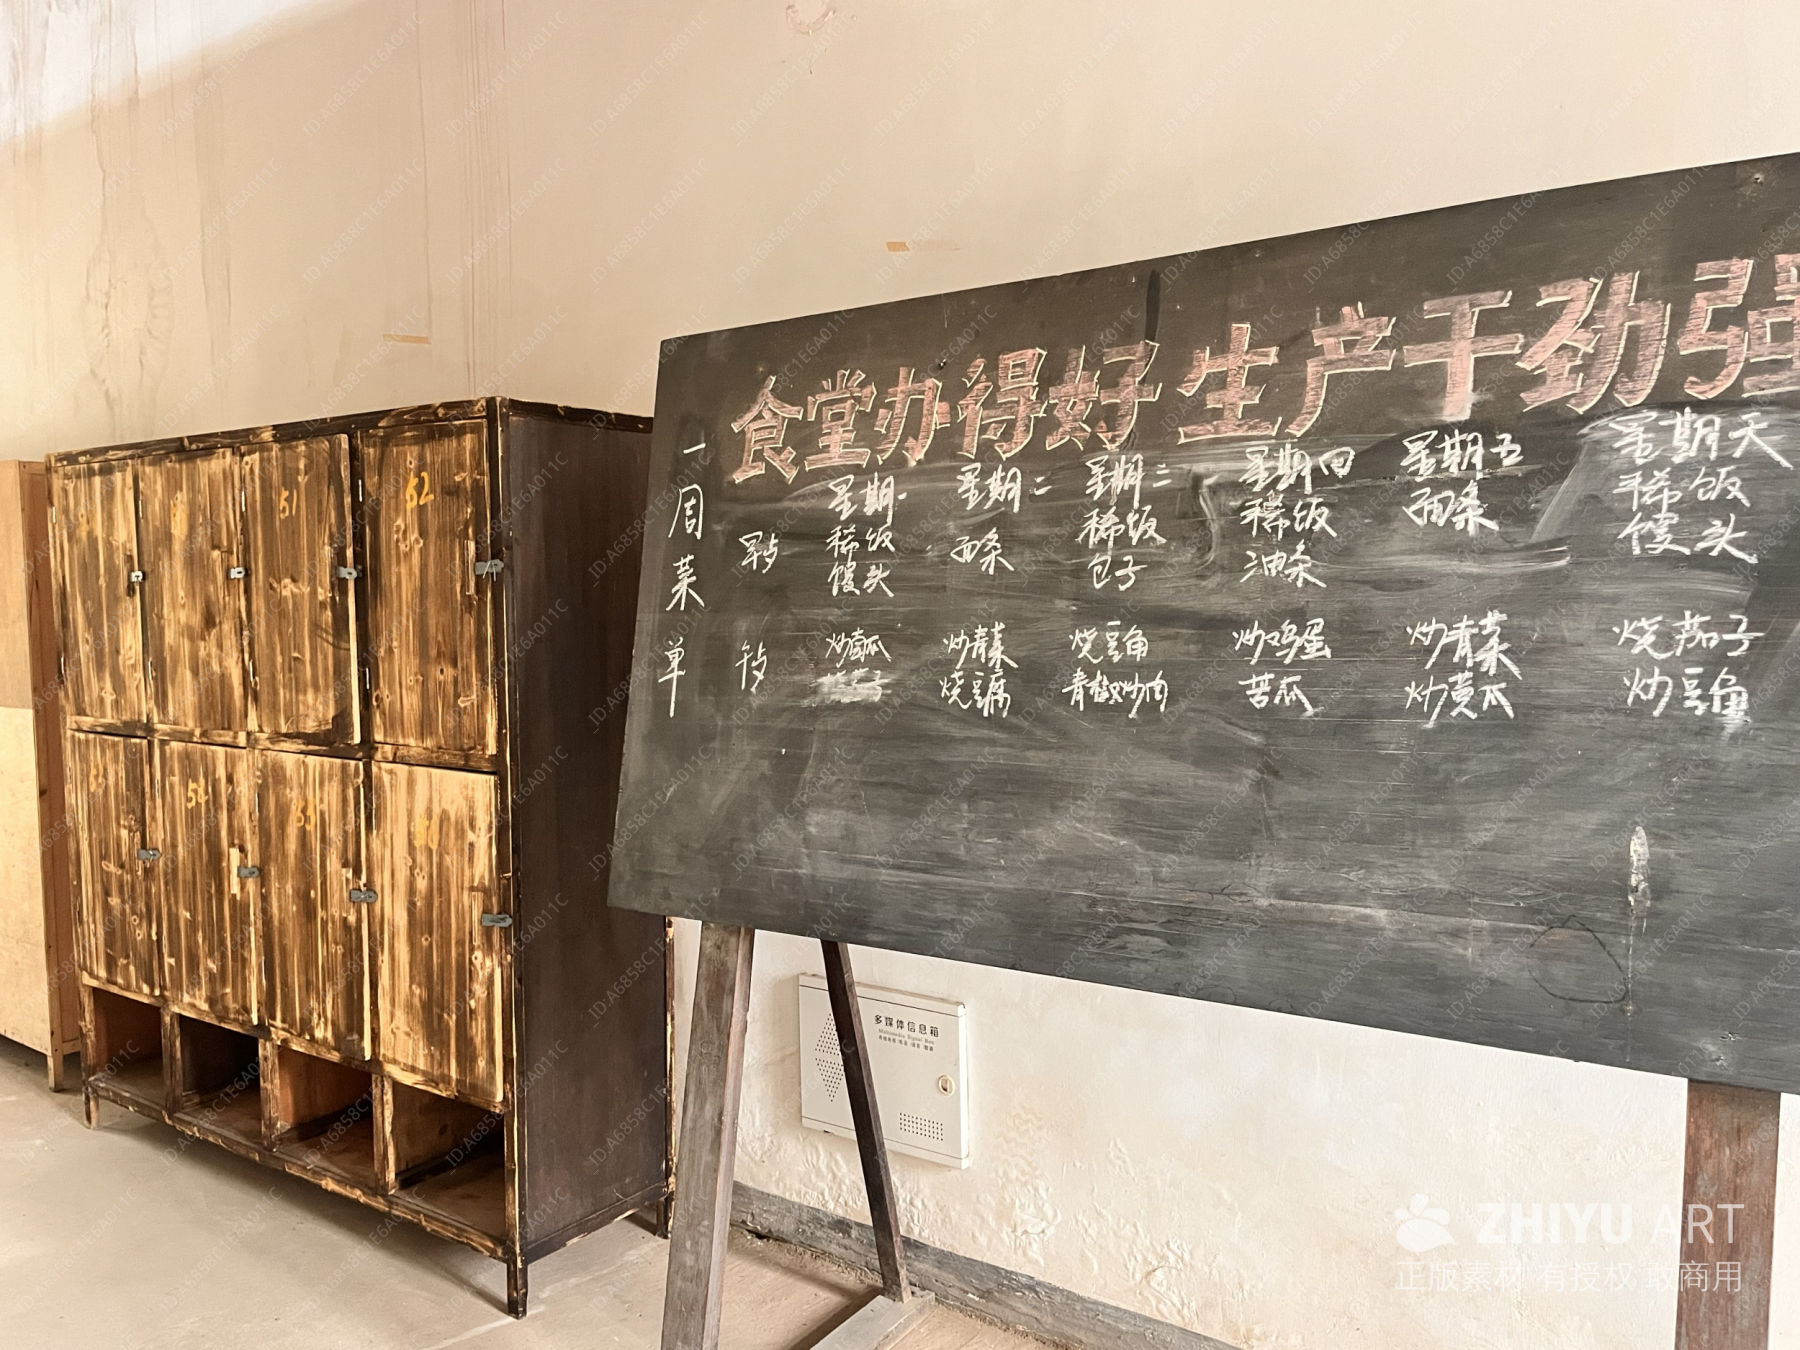 食堂办得好 生产干劲强
一周菜单
星期一 星期二 星期三 星期四 星期五 星期天
早点 稀饭 面条 稀饭 稀饭 面条 稀饭
馒头 包子 油条 馒头
午点 炒南瓜 炒青菜 烧豆角 炒鸡蛋 炒青菜 烧茄子
烧豆腐 青椒炒肉 苦瓜 炒黄瓜 炒豆角
51 52
54 55
多媒体信息箱
Multimedia Signal Box
ZHIYU ART
正版素材 有授权 敢商用
ID:A6858C1E6A011C